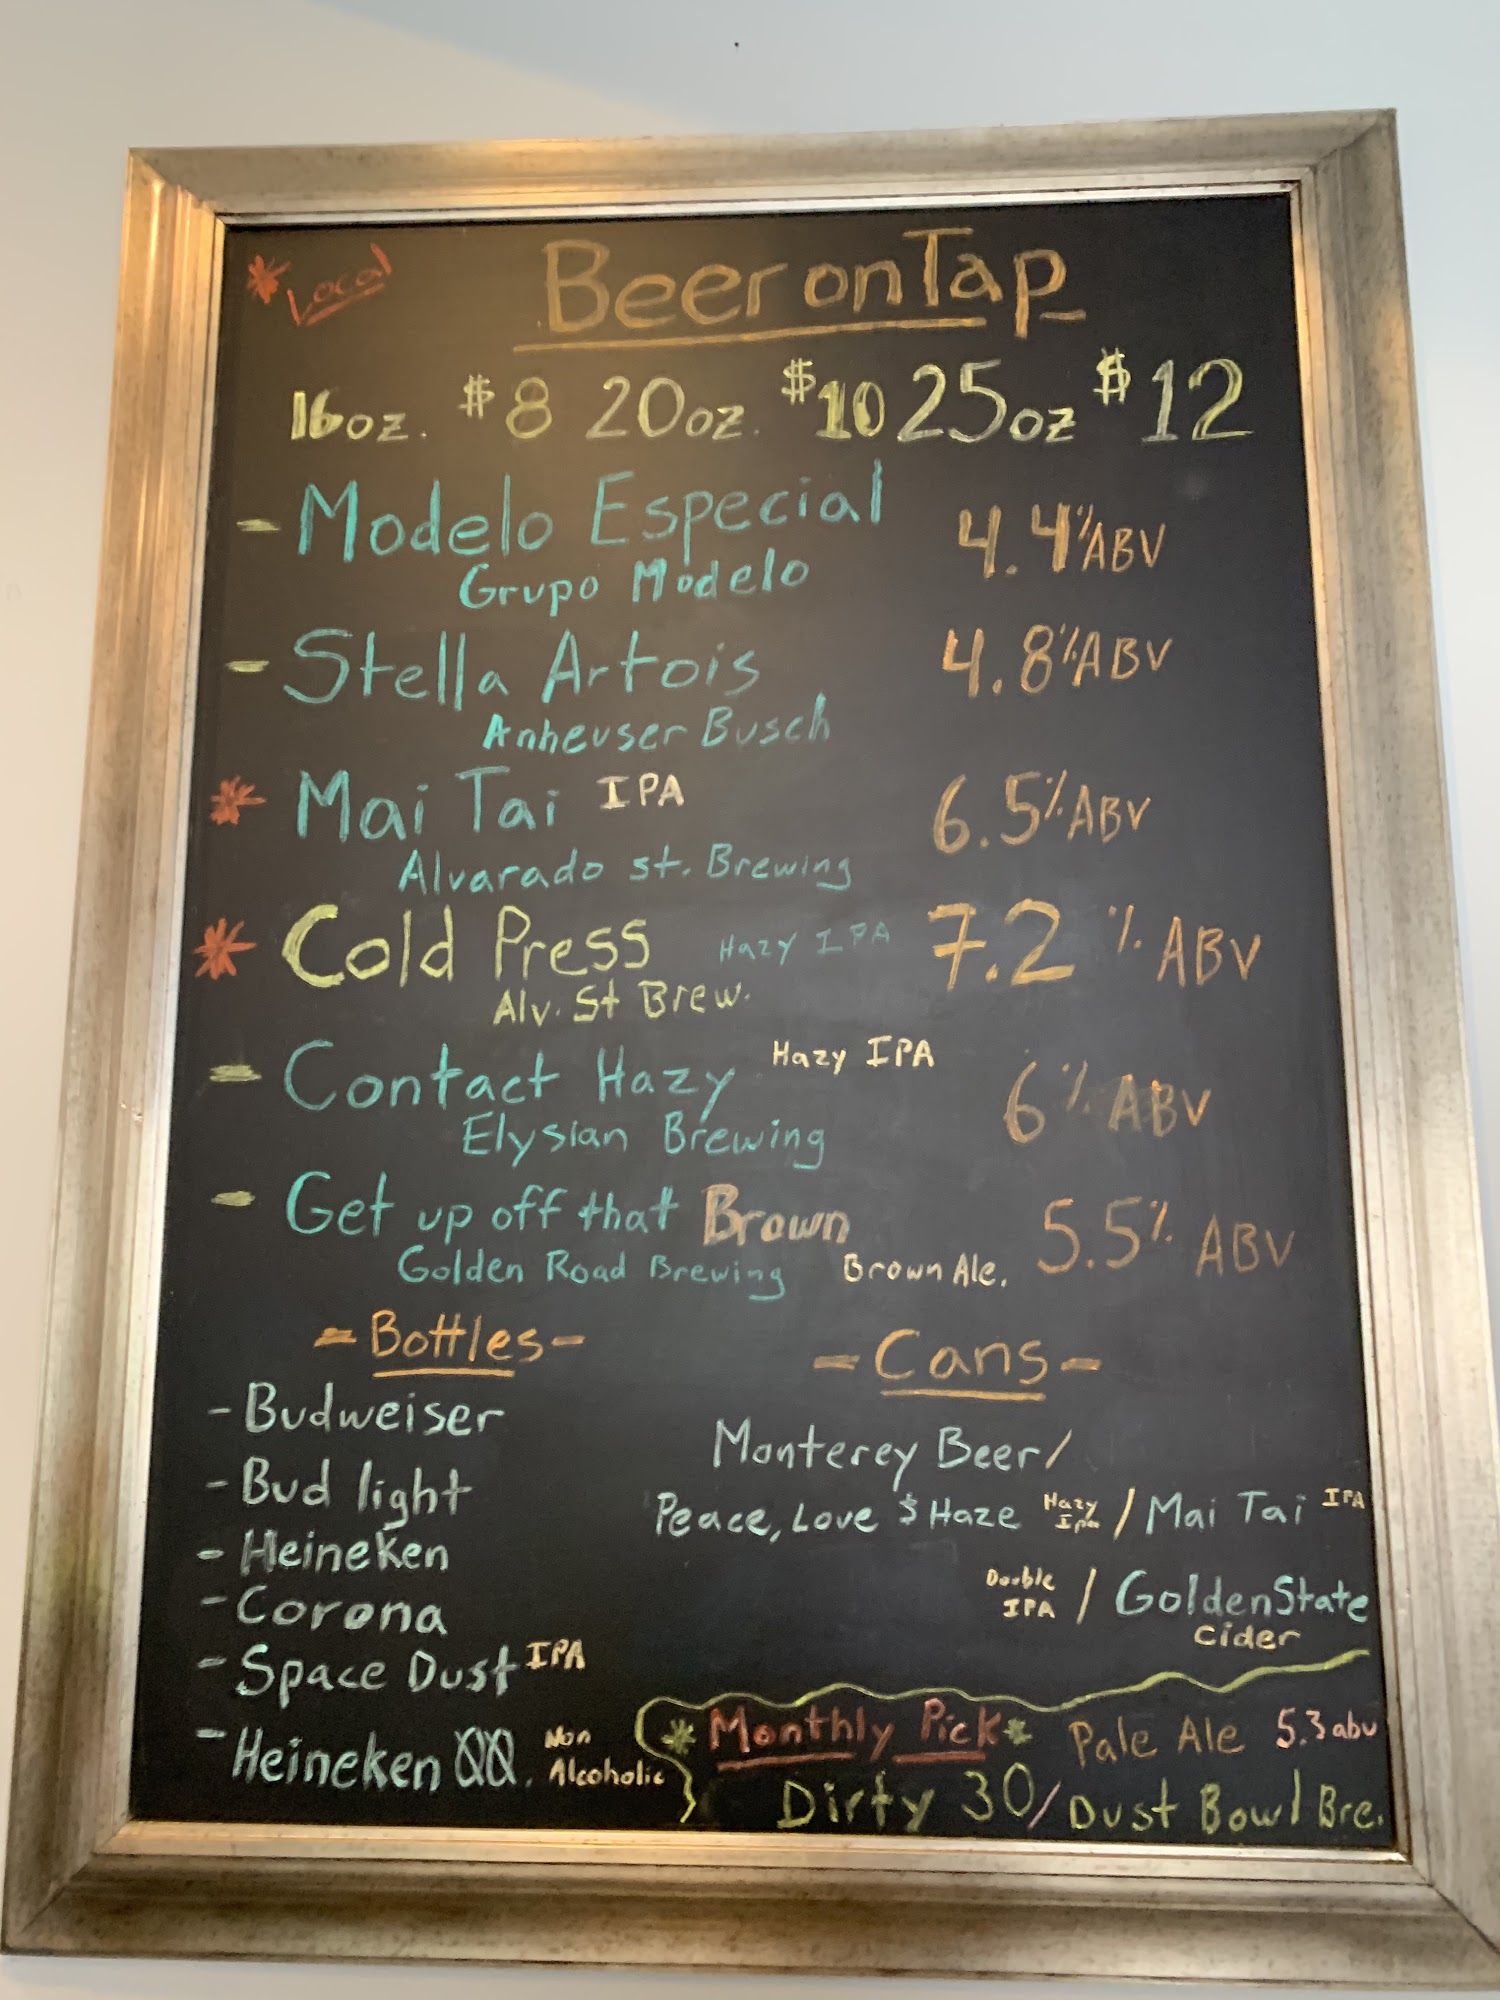 * Local
Beer on Tap
16oz. $8 20oz. $10 25oz $12
- Modelo Especial 4.4% ABV
Grupo Modelo
- Stella Artois 4.8% ABV
Anheuser Busch
* Mai Tai IPA 6.5% ABV
Alvarado St. Brewing
* Cold Press Hazy IPA 7.2% ABV
Alv. St Brew.
- Contact Hazy Hazy IPA 6% ABV
Elysian Brewing
- Get up off that Brown 5.5% ABV
Golden Road Brewing Brown Ale.
- Bottles -
- Budweiser
- Bud light
- Heineken
- Corona
- Space Dust IPA
- Heineken 00. Non Alcoholic
- Cans -
Monterey Beer/
Peace, Love $ Haze Hazy Ipa / Mai Tai IPA
Double IPA / Golden State
Cider
* Monthly Pick * Pale Ale 5.3 abv
Dirty 30/Dust Bowl Bre.